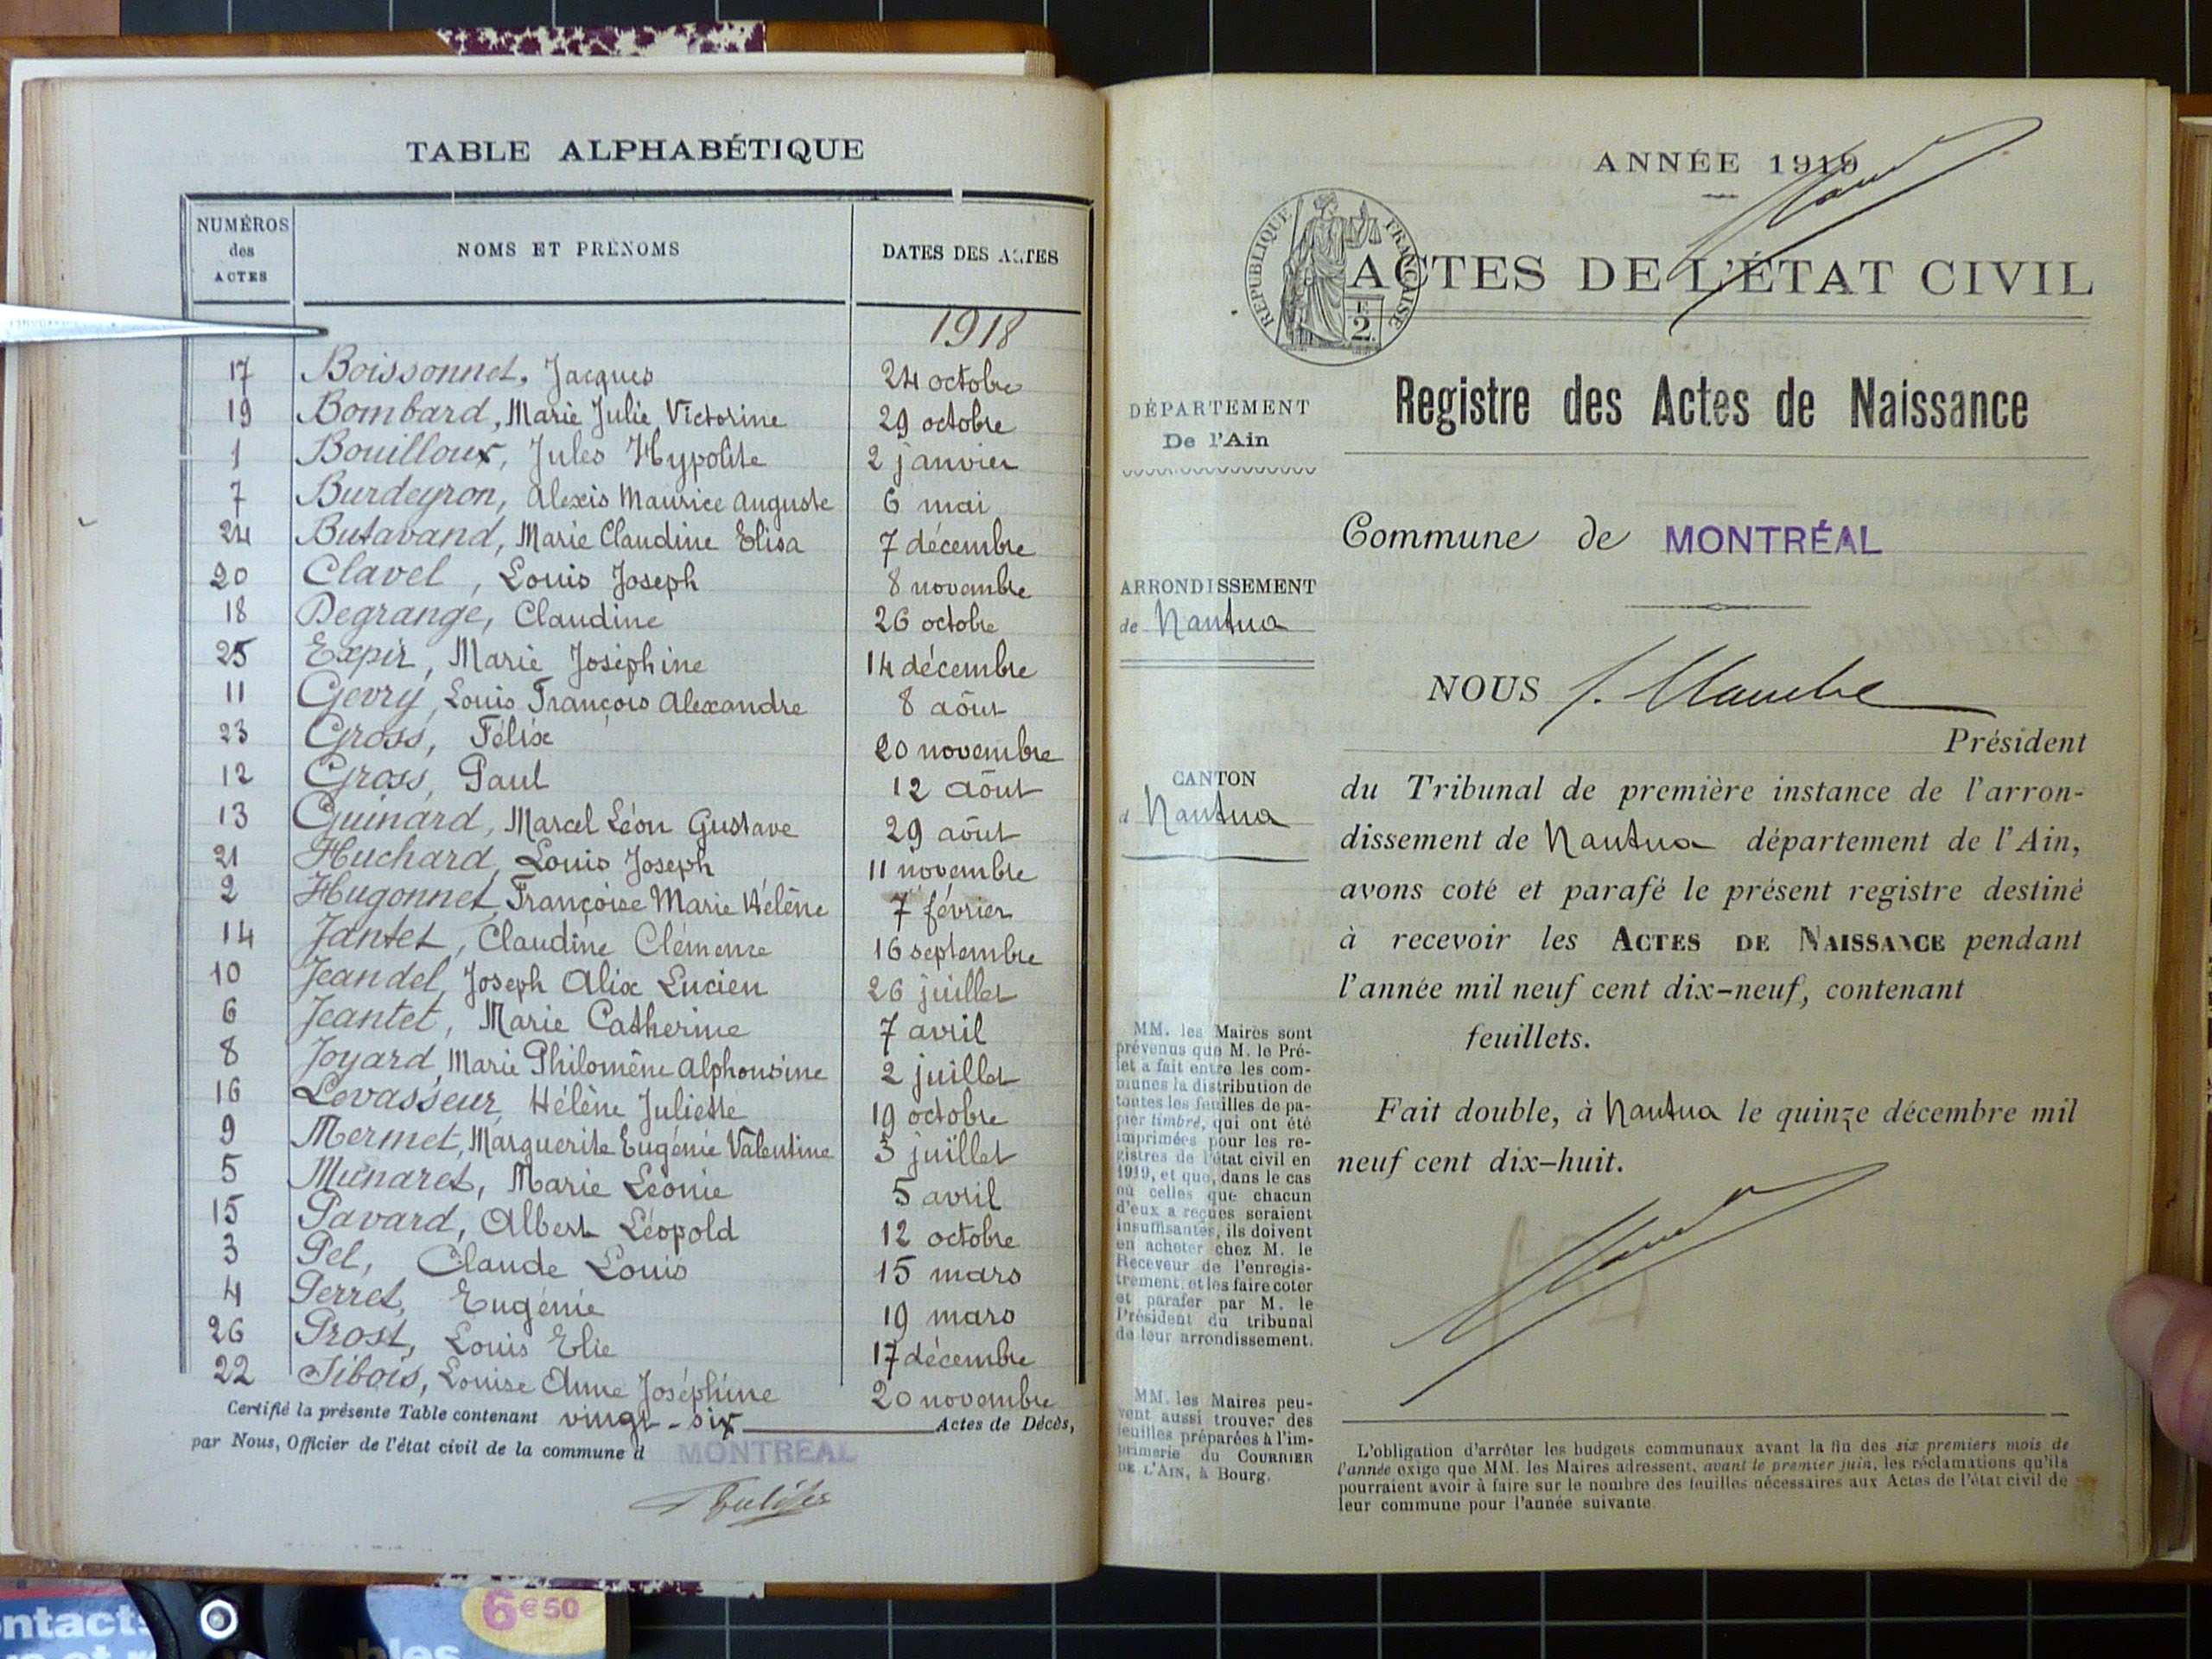 TABLE ALPHABÉTIQUE
NUMÉROS des ACTES NOMS ET PRÉNOMS DATES DES ACTES
1918
17 Boissonnet, Jacques 24 octobre
19 Bombard, Marie Julie Victorine 29 octobre
1 Bouilloux, Jules Hypolite 2 janvier
7 Burdeyron, Alexis Maurice Auguste 6 mai
24 Butavand, Marie Claudine Elisa 7 décembre
20 Clavel, Louis Joseph 8 novembre
18 Degrange, Claudine 26 octobre
25 Expir, Marie Joséphine 14 décembre
11 Gevry, Louis François Alexandre 8 août
23 Gross, Félix 20 novembre
12 Gross, Paul 12 août
13 Guinard, Marcel Léon Gustave 29 août
21 Huchard, Louis Joseph 11 novembre
2 Hugonnet, Françoise Marie Hélène 7 février
14 Jantet, Claudine Clémence 16 septembre
10 Jeandel, Joseph Alix Lucien 26 juillet
6 Jeantet, Marie Catherine 7 avril
8 Joyard, Marie Philomène Alphonsine 2 juillet
16 Levasseur, Hélène Juliette 19 octobre
9 Mermet, Marguerite Eugénie Valentine 3 juillet
5 Munaret, Marie Léonie 5 avril
15 Pavard, Albert Léopold 12 octobre
3 Pel, Claude Louis 15 mars
4 Perret, Eugénie 19 mars
26 Prost, Louis Elie 17 décembre
22 Sibois, Louise Anne Joséphine 20 novembre
Certifié la présente Table contenant vingt-six Actes de Décès,
par Nous, Officier de l'état civil de la commune d MONTRÉAL
ANNÉE 1919
RÉPUBLIQUE FRANÇAISE
ACTES DE L'ÉTAT CIVIL
Registre des Actes de Naissance
DÉPARTEMENT
De l'Ain
Commune de MONTRÉAL
ARRONDISSEMENT
de Nantua
NOUS
Président
CANTON
d Nantua
du Tribunal de première instance de l'arron-
dissement de Nantua département de l'Ain,
avons coté et parafé le présent registre destiné
à recevoir les ACTES DE NAISSANCE pendant
l'année mil neuf cent dix-neuf, contenant
feuillets.
Fait double, à Nantua le quinze décembre mil
neuf cent dix-huit.
MM. les Maires sont
prévenus que M. le Pré-
fet a fait entre les com-
munes la distribution de
toutes les feuilles de pa-
pier timbré, qui ont été
imprimées pour les re-
gistres de l'état civil en
1919, et que, dans le cas
où celles que chacun
d'eux a reçues seraient
insuffisantes, ils doivent
en acheter chez M. le
Receveur de l'enregis-
trement, et les faire coter
et parafer par M. le
Président du tribunal
de leur arrondissement.
MM. les Maires peu-
vent aussi trouver des
feuilles préparées à l'im-
primerie du COURRIER
DE L'AIN, à Bourg.
L'obligation d'arrêter les budgets communaux avant la fin des six premiers mois de
l'année exige que MM. les Maires adressent, avant le premier juin, les réclamations qu'ils
pourraient avoir à faire sur le nombre des feuilles nécessaires aux Actes de l'état civil de
leur commune pour l'année suivante.
6€50